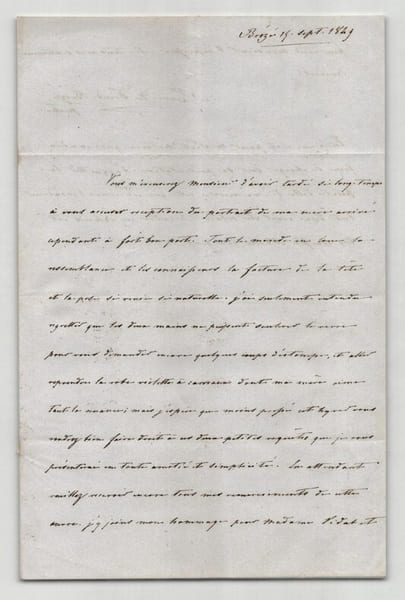 Brézé 15. sept. 1849
Vous m'excuserez Monsieur d'avoir tardé si long-temps
à vous accuser réception du portrait de ma mère arrivé
cependant à fort bon port. Tout le monde en loue la
ressemblance et les connaisseurs la facture de la tête
et la pose si vraie si naturelle. j'ai seulement entendu
regretter que les deux mains ne
pour vous demander encore quelques coups d'estompe, et
la robe violette à carreaux dont ma mère aime
tant la ; mais j'espère que moins pressé cet hyver vous
voudrez bien faire droit à ces deux petites requêtes que je vous
présenterai en toute amitié et simplicité. En attendant
veuillez recevoir encore tous mes remerciements de cette
œuvre. j'y joins mon hommage pour Madame Vidal et